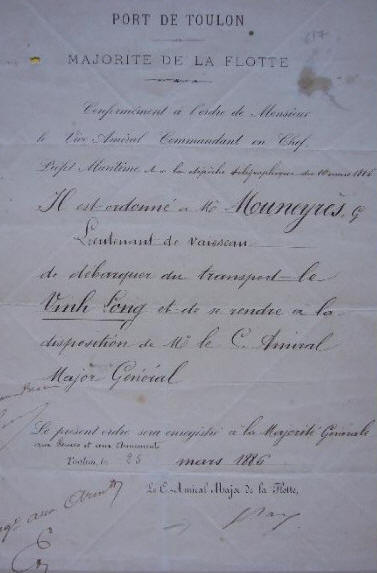 PORT DE TOULON
MAJORITÉ DE LA FLOTTE
Conformément à l'ordre de Monsieur
le Vice Amiral Commandant en Chef
Préfet Maritime et à la dépêche télégraphique du 10 mars 1886
Il est ordonné à Mr Mouneyrès, G
Lieutenant de vaisseau
de débarquer du transport le
Vinh Long et de se rendre à la
disposition de Mr le C. Amiral
Major Général
Le présent ordre sera enregistré à la Majorité Générale
aux Revues et aux Armements
Toulon, le 25 mars 1886
Le C. Amiral Major de la Flotte,
aux Arm